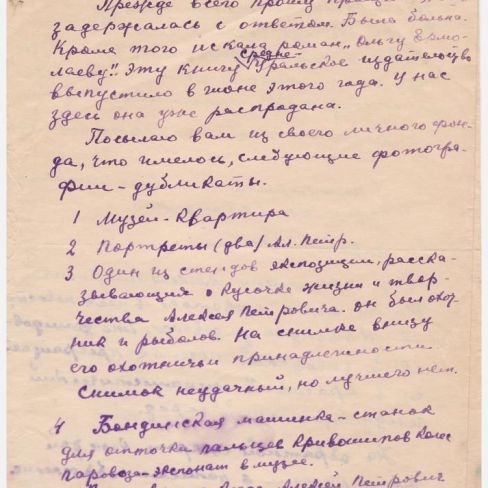 Прежде всего прошу прощ
задержалась с ответом. Была больна.
Кроме того искала роман „Ольгу Ермо-
лаеву". Эту книгу Средне-Уральское издательство
выпустило в июне этого года. У нас
здесь она уже распродана.
Посылаю вам из своего личного фон-
да, что имелось, следующие фотогра-
фии – дубликаты.
1 Музей-квартира
2 Портреты (два) Ал. Петр.
3 Один из стендов экспозиции, расска-
зывающий о кусочке жизни и твор-
чества Алексея Петровича. Он был охот-
ник и рыболов. На снимке внизу
его охотничьи принадлежности.
Снимок неудачный, но лучшего нет.
4 Бондинская машинка-станок
для обточки пальцев кривошипов колес
паровоза-экспонат в музее.
Алексей Петрович